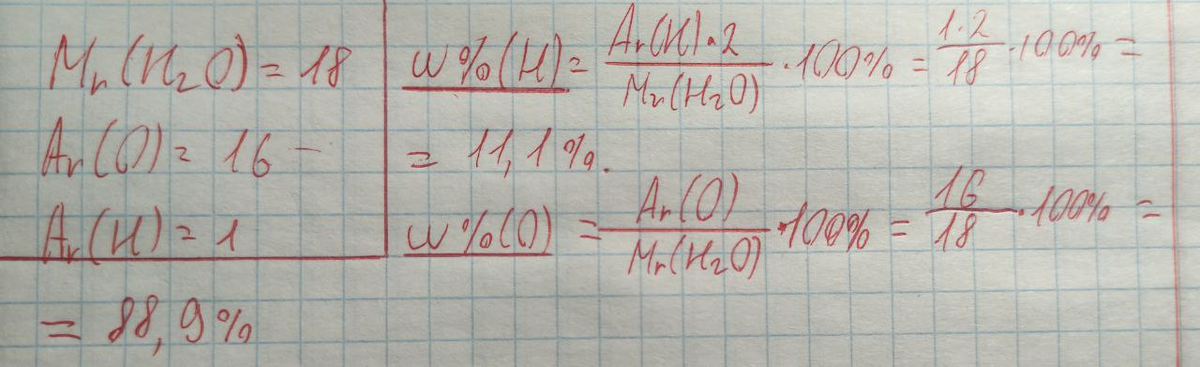 Mr(H₂O) = 18
Ar(O) = 16 –
Ar(H) = 1
w%(H) = Ar(H)·2 / Mr(H₂O) ·100% = 1·2 / 18 ·100% =
= 11,1%.
w%(O) = Ar(O) / Mr(H₂O) ·100% = 16 / 18 ·100% =
= 88,9%